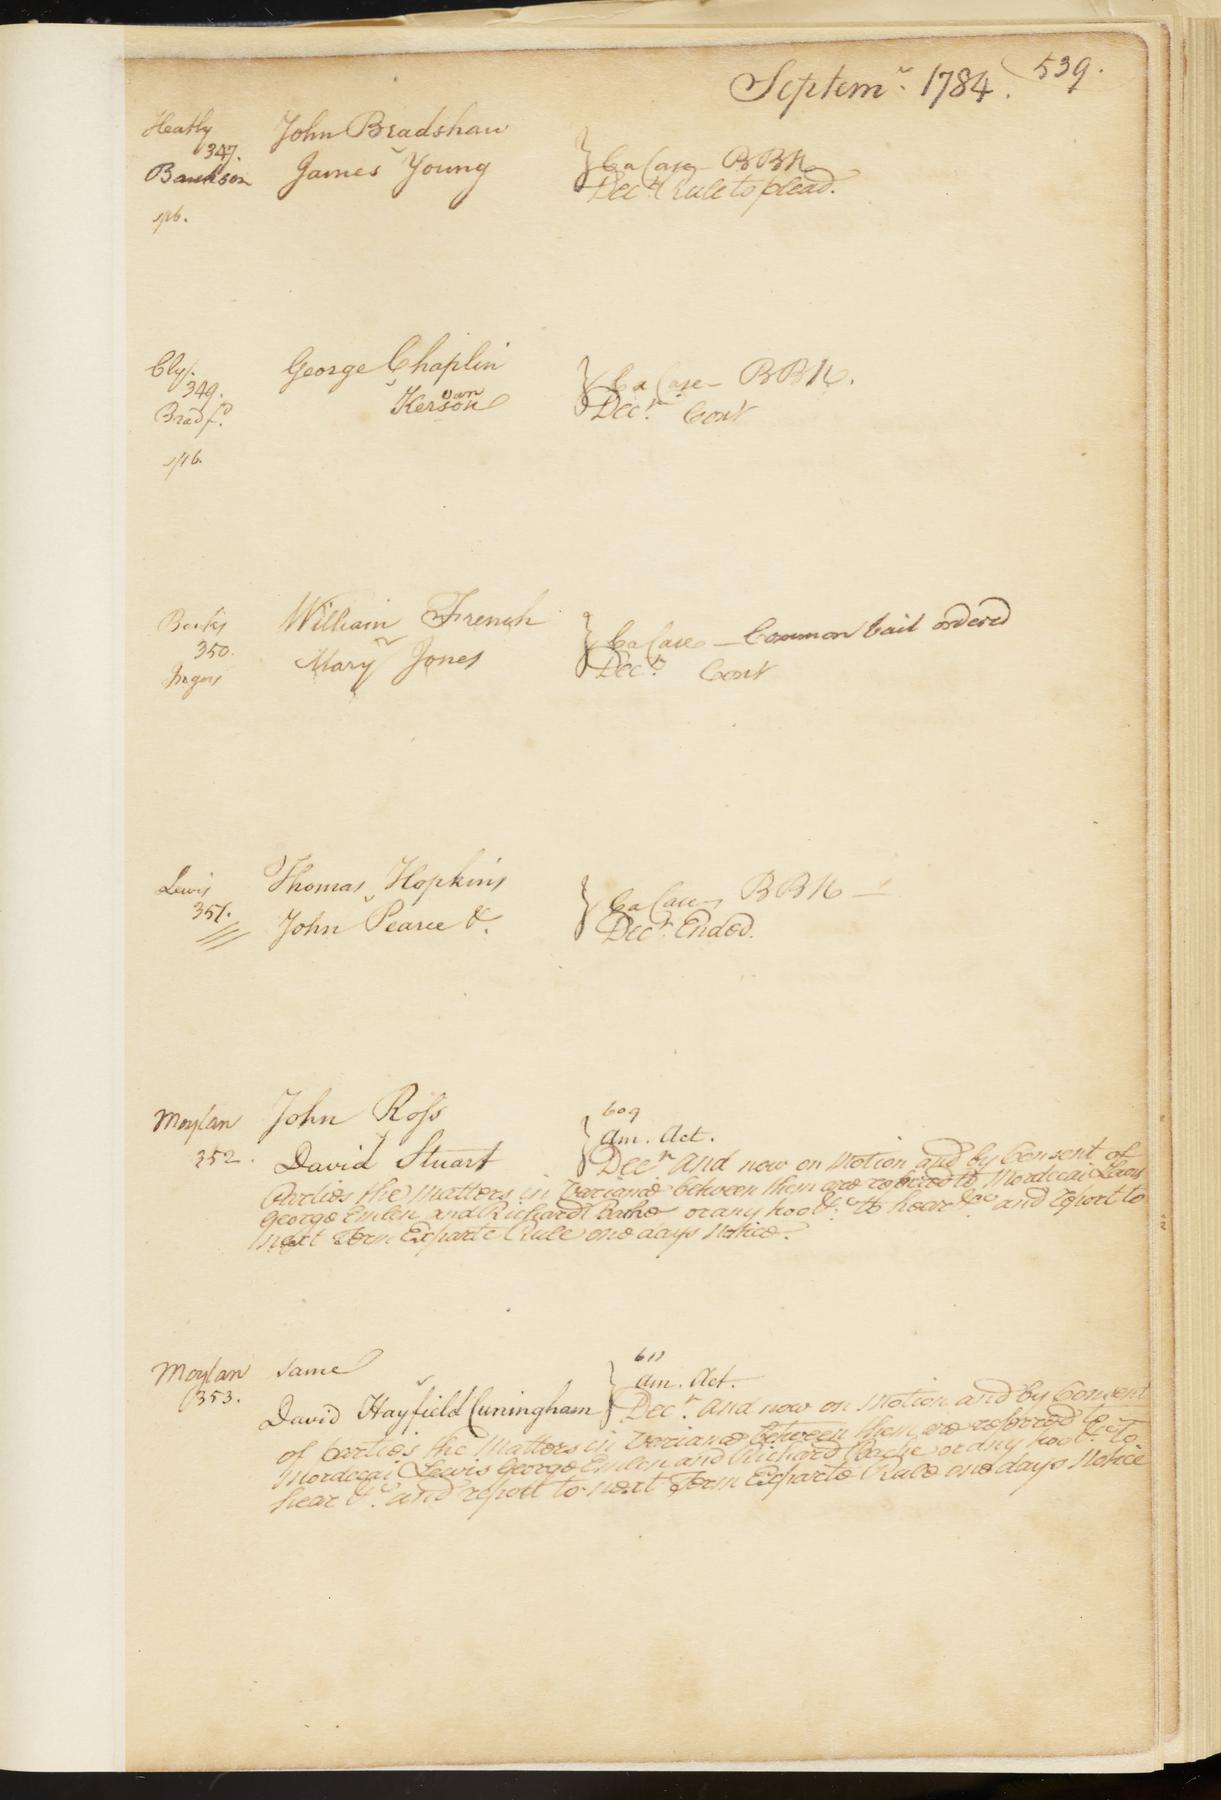 Septem.r 1784. 539.
Heatly John Bradshaw
347. } Ca Case BBK
Bankson James Young Dec.r Rule to plead.
spb.
Cly. George Chaplin
349. v } Ca Case - BBK.
Bradf.d Kerson van Dec.r Cont
spb.
Becks William French
350. v } Ca Case - Common bail ordered
Ingers Mary Jones Dec.r Cont
Lewis Thomas Hopkins
351. v } Ca Case BBK -
John Pearce &c. Dec.r Ended.
609
Moylan John Ross } am. Act.
352. v David Stuart Dec.r And now on Motion and by Consent of
Parties the Matters in Variance between them are referred to Mordecai Lewis
George Emlen and Richard Bache or any two &c. to hear &c and report to
next Term Exparte Rule one days Notice.
611
Moylan same } am. Act.
353. v David Hayfield Cuningham Dec.r And now on Motion and by Consent
of parties the Matters in Variance between them are referred to
Mordecai Lewis George Emlen and Richard Bache or any two &c to
hear &c. and report to next Term Exparte Rule one days Notice